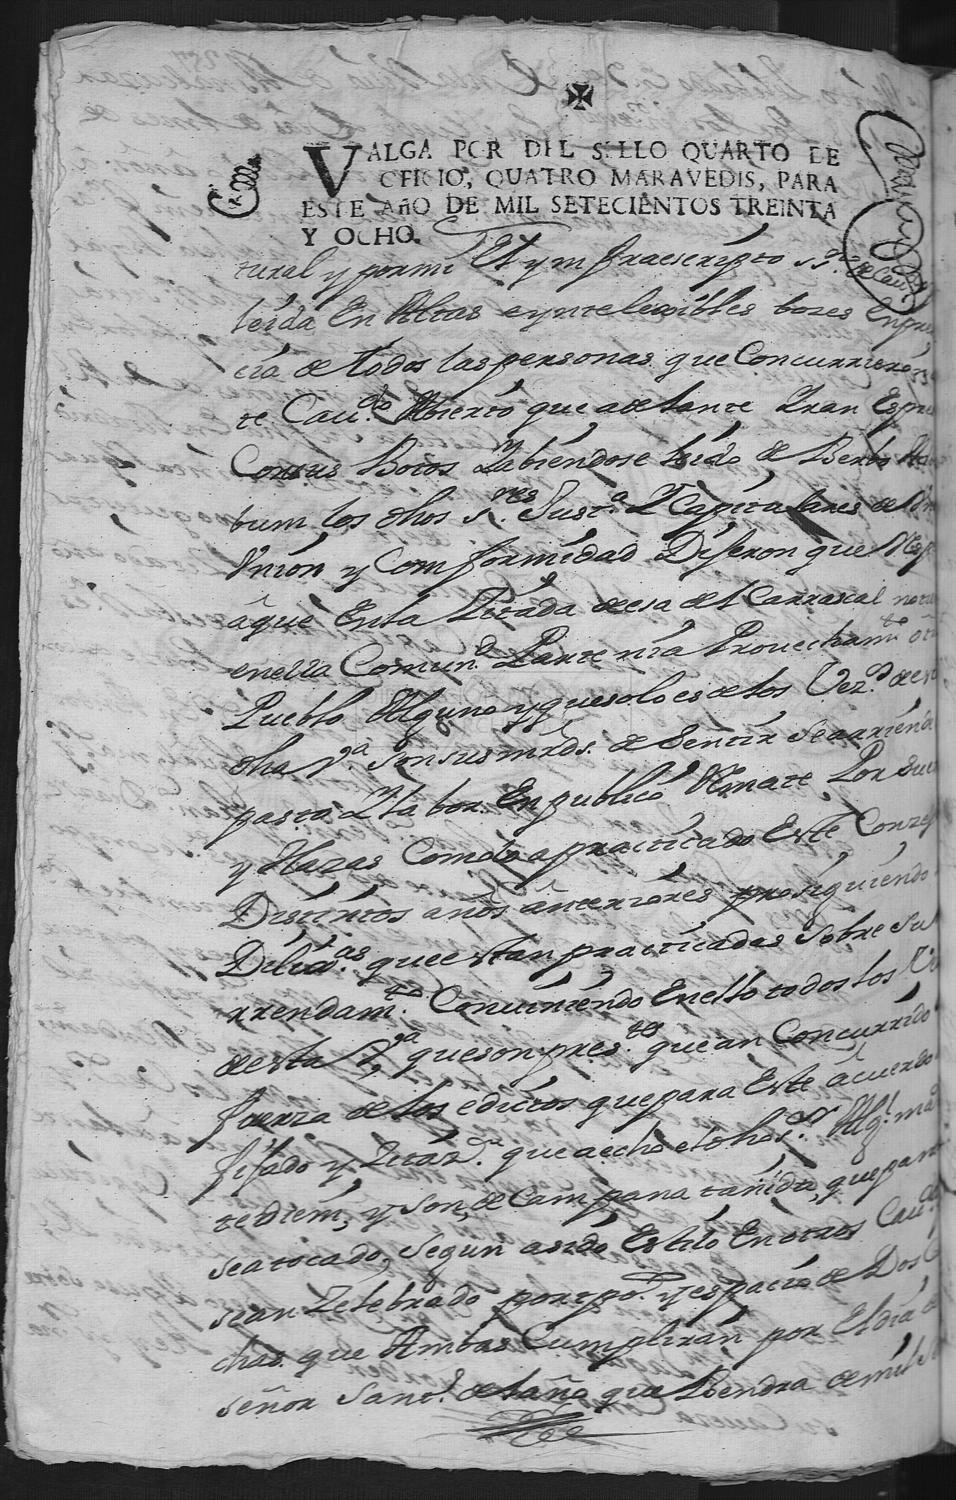 VALGA POR DEL SELLO QUARTO DE
OFICIO, QUATRO MARAVEDIS, PARA
ESTE AñO DE MIL SETECIENTOS TREINTA
Y OCHO.
tural y por mi El ymfraescripto ss.no de Cau.do
leida En Altas eyntelexibles bozes Enpre
cia de todos las personas que Concurrieron
te Cau.do Abierto que adelante Yran Espre
Consus Botos Yabiendose leido de Berbo Ad
bum los dhos s.res Just.a Y Capitulares de
Union y Comformidad Dijeron que Resp
âque Enla Zitada desa del Carrascal no
enella Comun.d Parte nia Provecham.to otro
Pueblo Alguno y que solo es de los Vez.os de es
dha V.a son sus mrds. de Sentir Searriende
pasto Y labor En publico Remate Por
y Hazas Como lo a practicado Este Conzejo
Distintos años ânteriores prosiguiendo
Dilix.as que estan practicadas Sobre su
rrendam.to Conuiniendo Enello todos los
de esta V.a que son pres.tes que an Concurrido
fuerza de los edictos que para Este âcuerdo
fijado y Zitaz.on que a echo el dho s.or Alg.l ma.or
te diem, y son, de Campana tañida, que para
sea tocado, segun asido Estilo En otros Cau.dos
sean Zelebrado por tpo. Y espacio de Dos
chas que Ambas Cumpliran por El dia de
señor San.t. del año que Bendra de mil